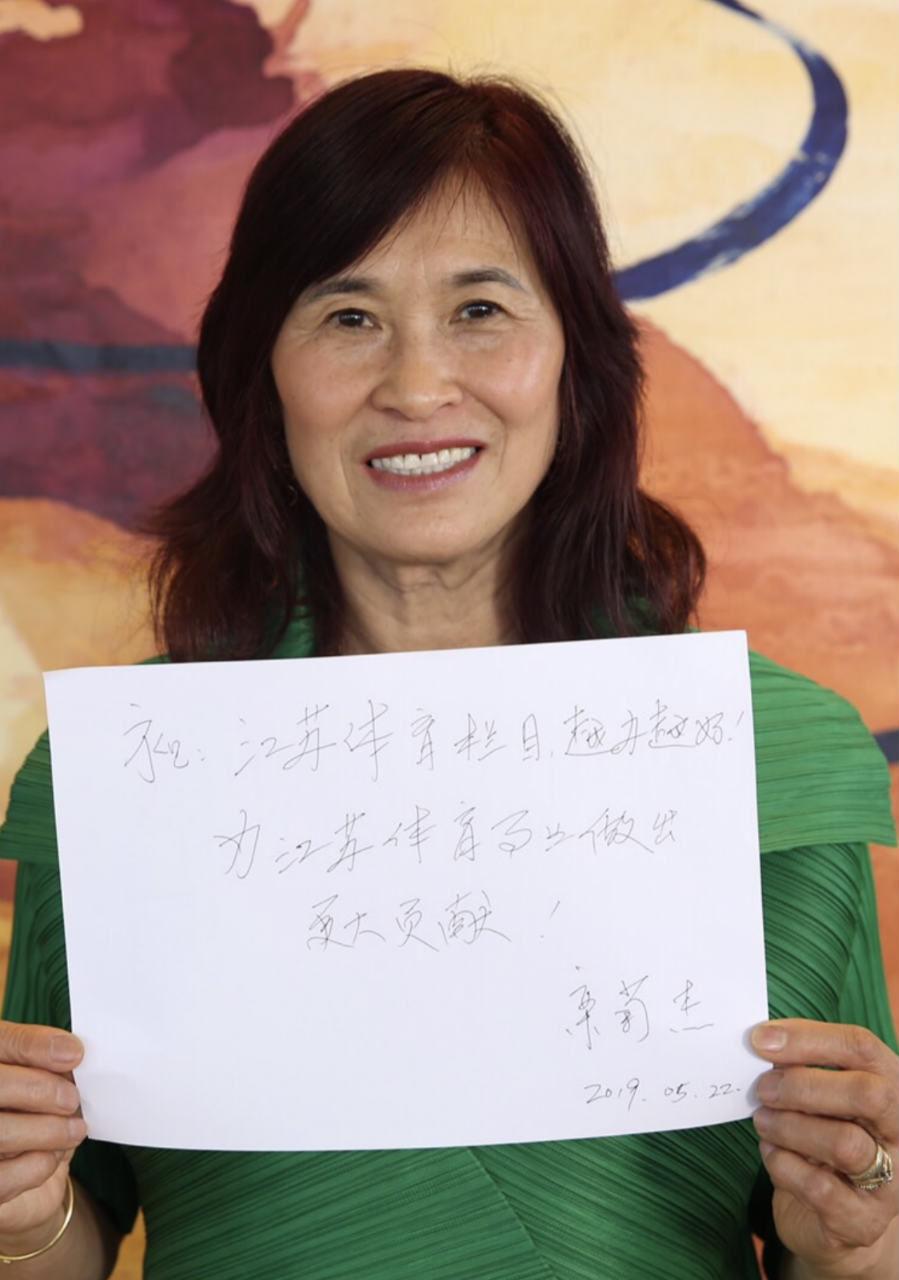 祝：江苏体育栏目，越办越好！
为江苏体育事业做出
更大贡献！
栾菊杰
2019.05.22.